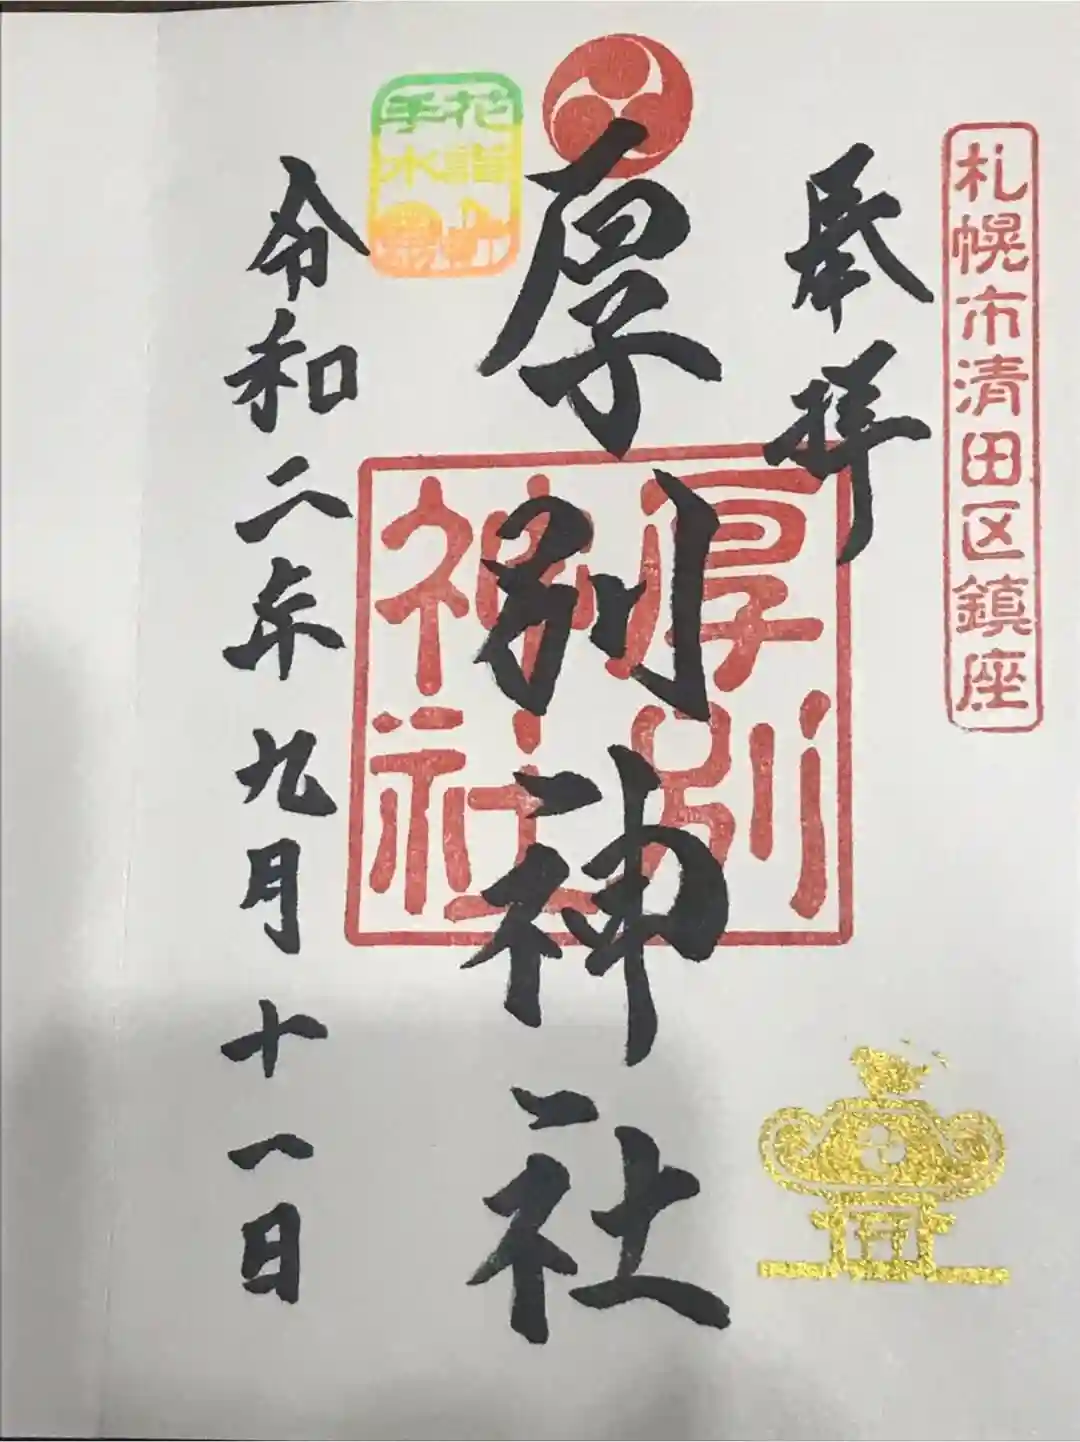 札幌市清田区鎮座
奉拝
厚別神社
厚別
神社
花詣
手水
令和二年九月十一日